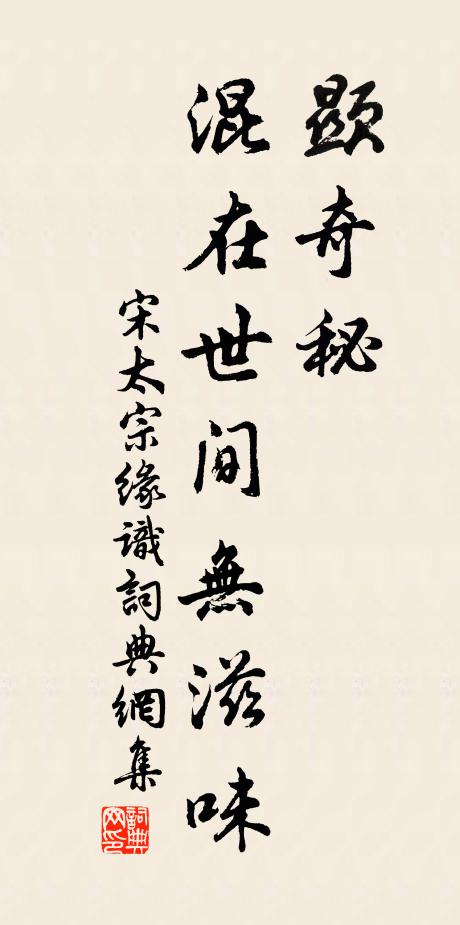 顯奇秘
混在世間無滋味
宋太宗緣識詞典網集
詞典網印